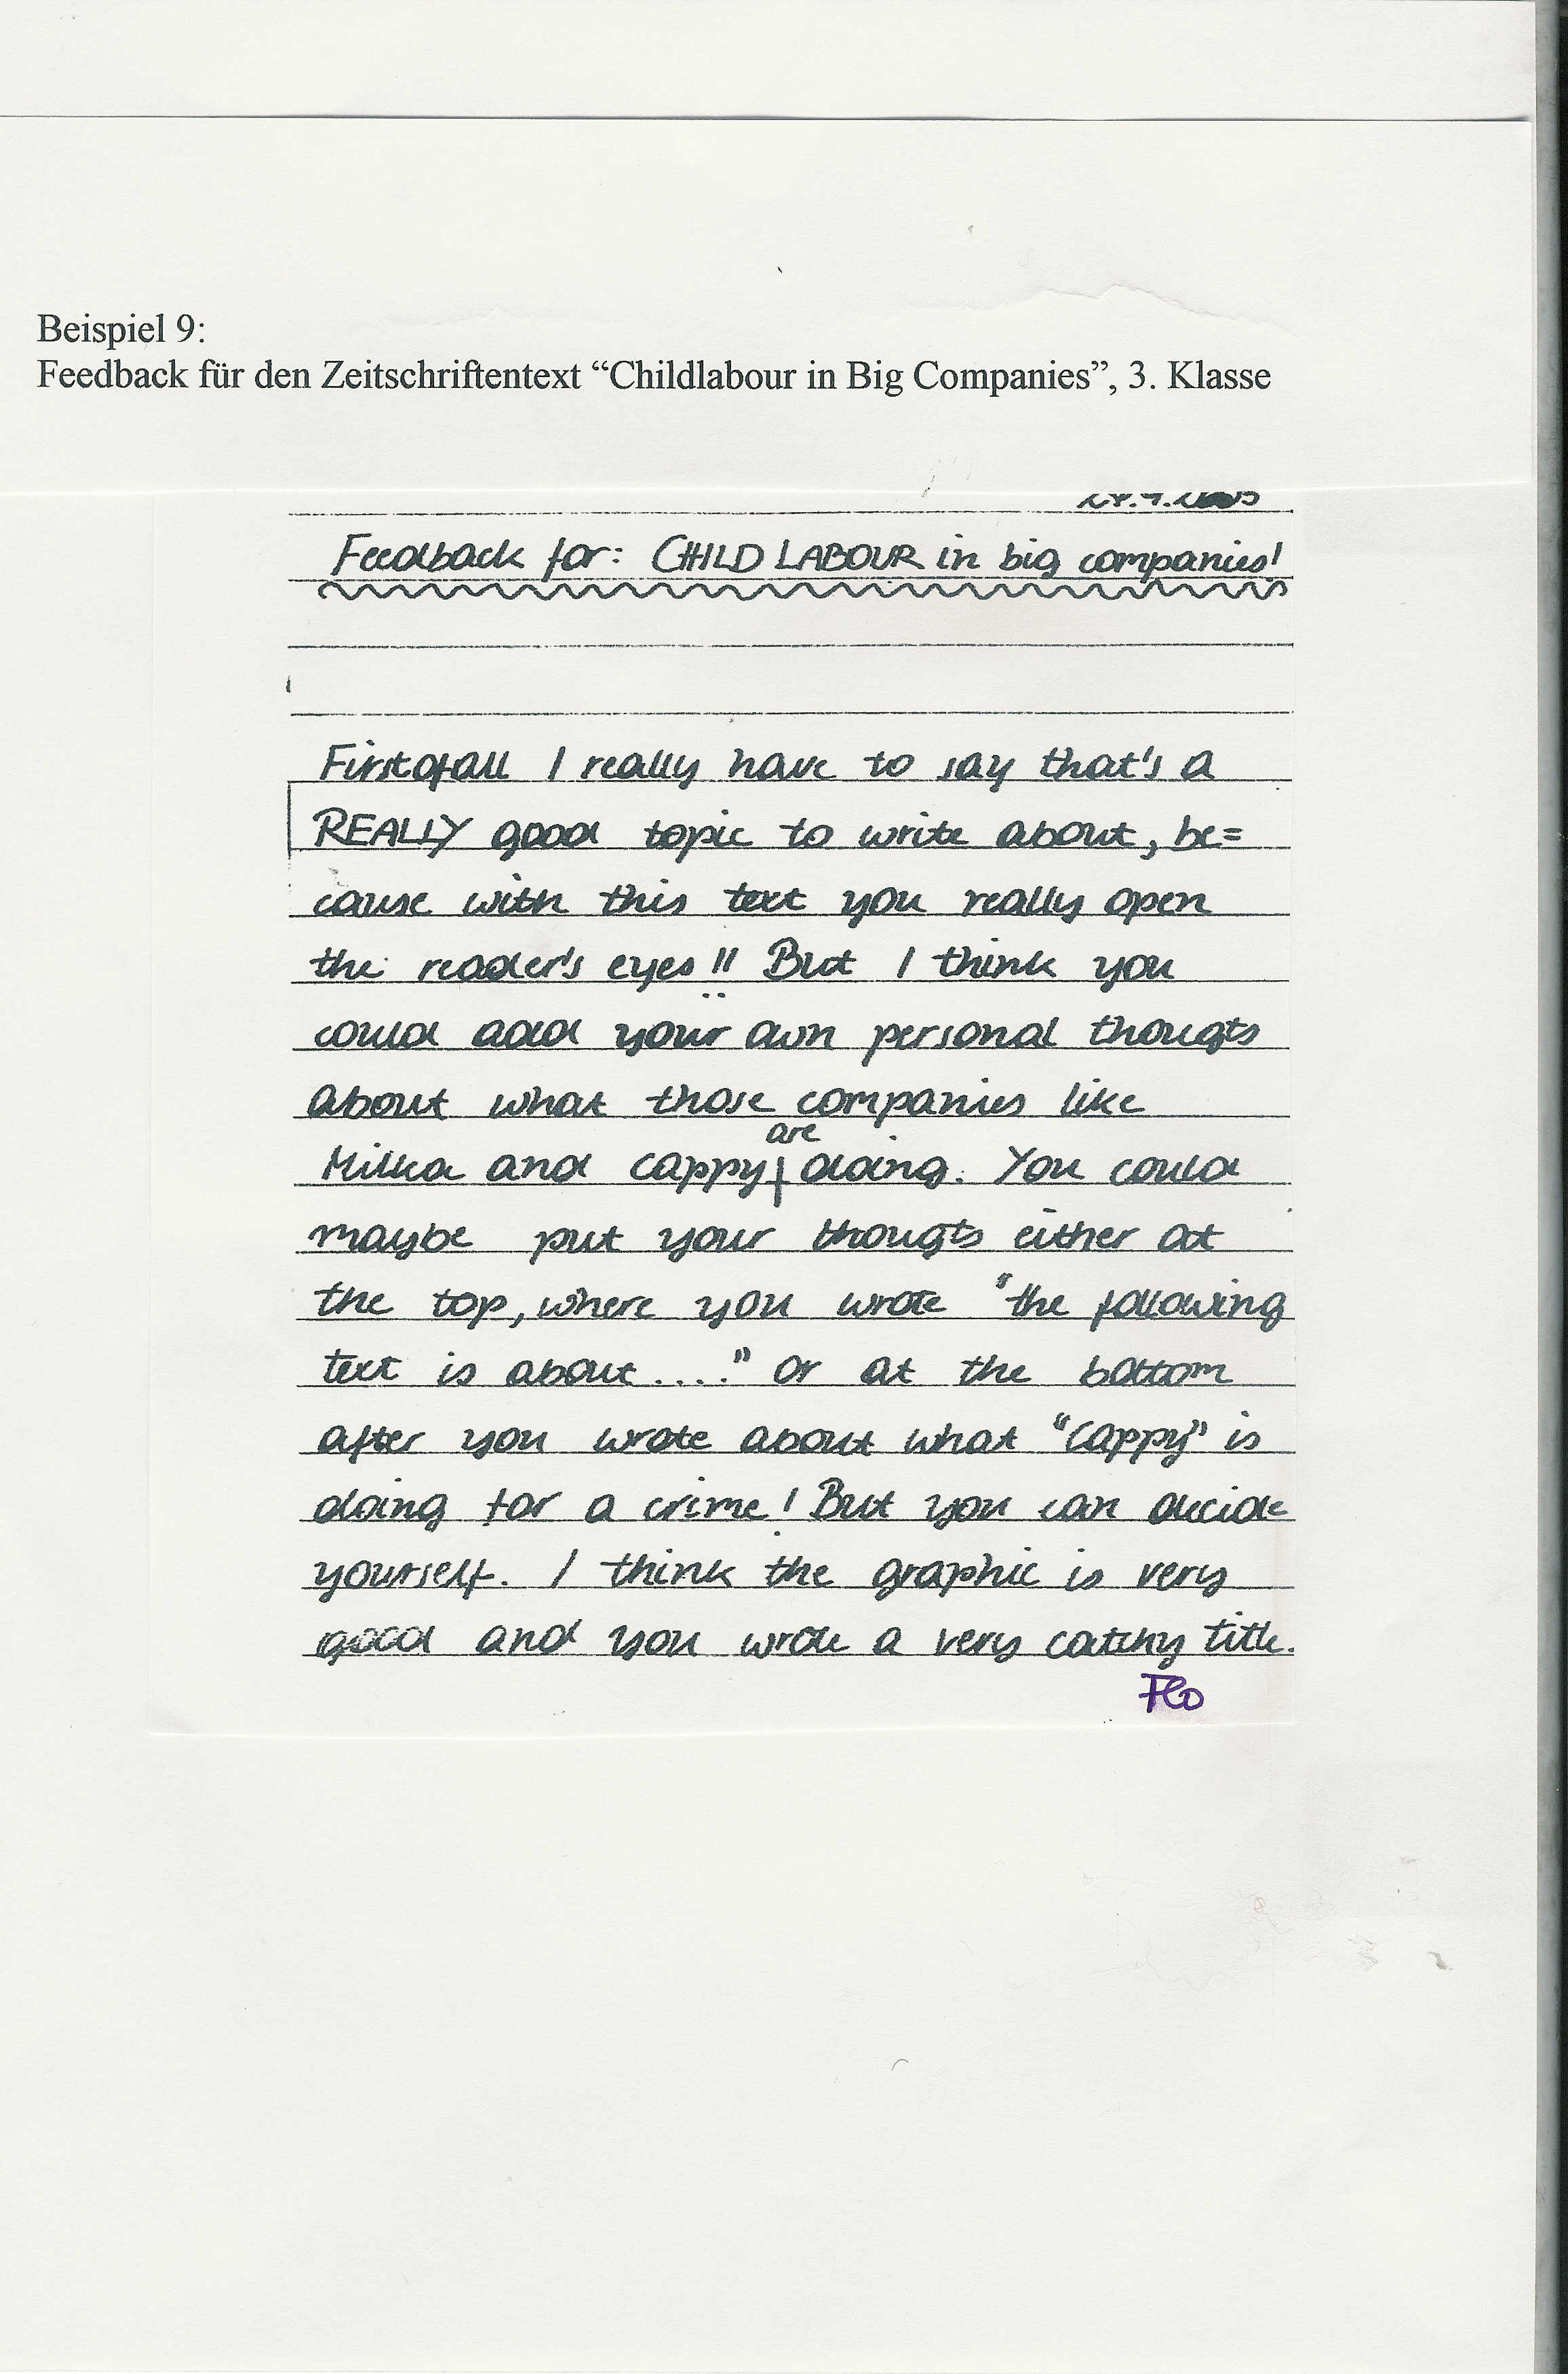 Beispiel 9:
Feedback für den Zeitschriftentext “Childlabour in Big Companies”, 3. Klasse
Feedback for: CHILD LABOUR in big companies!
Firstofall I really have to say that's a
REALLY good topic to write about, be=
cause with this text you really open
the reader's eyes!! But I think you
could add your own personal thougts
about what those companies like
Milka and Cappy are doing. You could
maybe put your thougts either at
the top, where you wrote "the following
text is about....." or at the bottom
after you wrote about what "Cappy" is
doing for a crime! But you can decide
yourself. I think the graphic is very
good and you wrote a very catchy title.
Flo